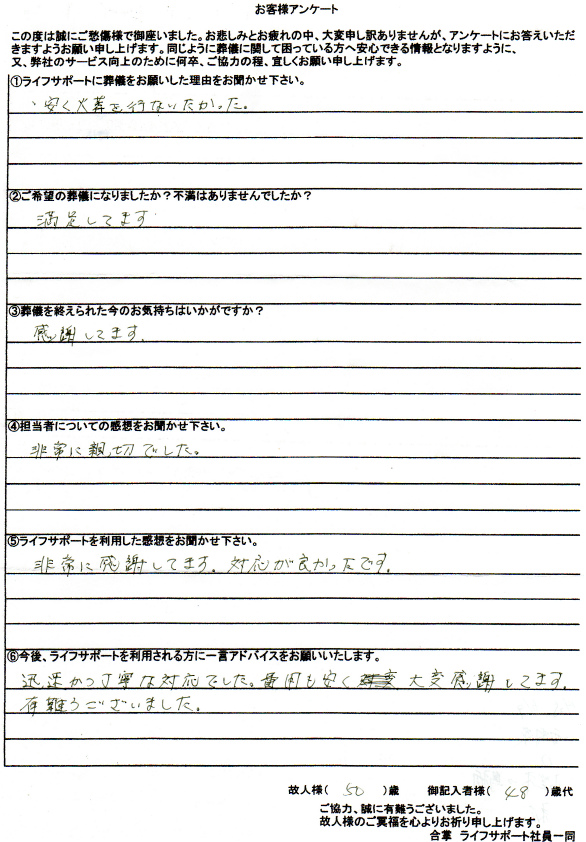 お客様アンケート
この度は誠にご愁傷様で御座いました。お悲しみとお疲れの中、大変申し訳ありませんが、アンケートにお答えいただ
きますようお願い申し上げます。同じように葬儀に関して困っている方へ安心できる情報となりますように、
又、弊社のサービス向上のために何卒、ご協力の程、宜しくお願い申し上げます。
①ライフサポートに葬儀をお願いした理由をお聞かせ下さい。
、安く火葬を行ないたかった。
②ご希望の葬儀になりましたか？不満はありませんでしたか？
満足してます
③葬儀を終えられた今のお気持ちはいかがですか？
感謝してます。
④担当者についての感想をお聞かせ下さい。
非常に親切でした。
⑤ライフサポートを利用した感想をお聞かせ下さい。
非常に感謝してます。対応が良かったです。
⑥今後、ライフサポートを利用される方に一言アドバイスをお願いいたします。
迅速かつ丁寧な対応でした。費用も安く 大変感謝してます。
有難うございました。
故人様（ 50 ）歳 御記入者様（ 48 ）歳代
ご協力、誠に有難うございました。
故人様のご冥福を心よりお祈り申し上げます。
合掌 ライフサポート社員一同